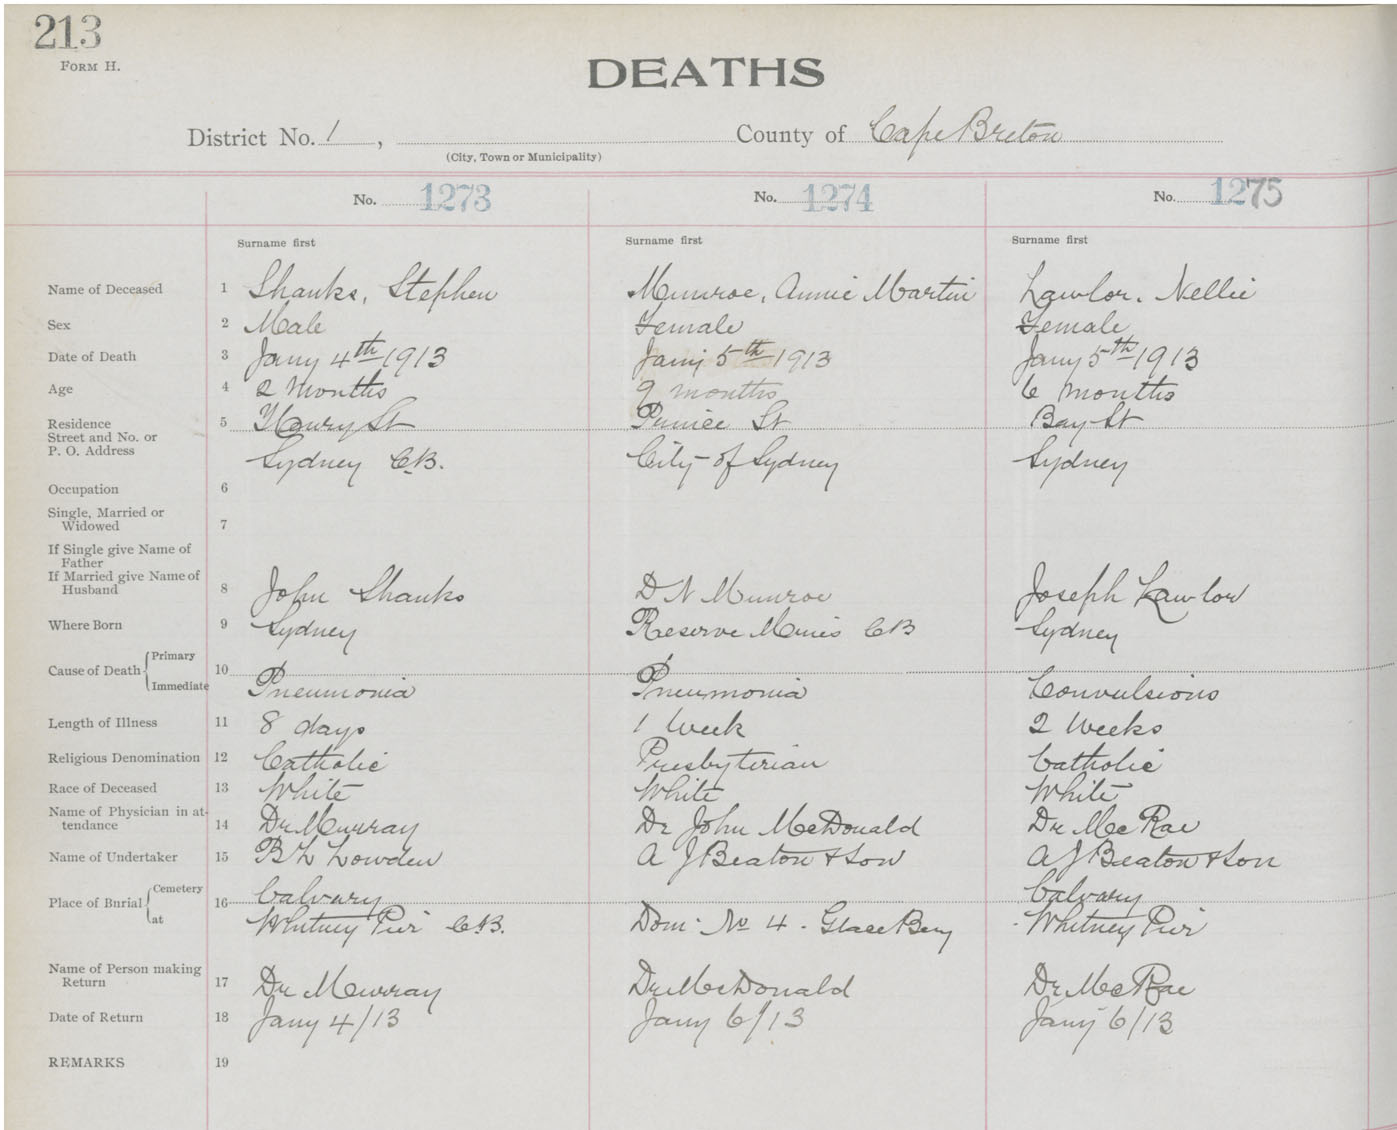 213
FORM H.
DEATHS
District No. 1 ,
(City, Town or Municipality)
County of Cape Breton
No. 1273 No. 1274 No. 1275
Surname first Surname first Surname first
Name of Deceased 1 Shanks, Stephen Munroe, Annie Martin Lawlor, Nellie
Sex 2 Male Female Female
Date of Death 3 Jany 4th 1913 Jany 5th 1913 Jany 5th 1913
Age 4 2 Months 9 months 6 months
Residence
Street and No. or
P. O. Address
5 Henry St Prince St Bay St
Sydney C.B. City of Sydney Sydney
Occupation 6
Single, Married or
Widowed 7
If Single give Name of
Father
If Married give Name of
Husband 8 John Shanks D N Munroe Joseph Lawlor
Where Born 9 Sydney Reserve Mines CB Sydney
Cause of Death Primary
Immediate 10 Pneumonia Pneumonia Convulsions
Length of Illness 11 8 days 1 Week 2 Weeks
Religious Denomination 12 Catholic Presbyterian Catholic
Race of Deceased 13 White White White
Name of Physician in at-
tendance 14 Dr Murray Dr John McDonald Dr McRae
Name of Undertaker 15 B L Lowden A J Beaton & Son A J Beaton & Son
Place of Burial Cemetery
at
16 Calvary Calvary
Whitney Pier C.B. Dom. No 4 . Glace Bay Whitney Pier
Name of Person making
Return 17 Dr Murray Dr McDonald Dr McRae
Date of Return 18 Jany 4/13 Jany 6/13 Jany 6/13
REMARKS 19